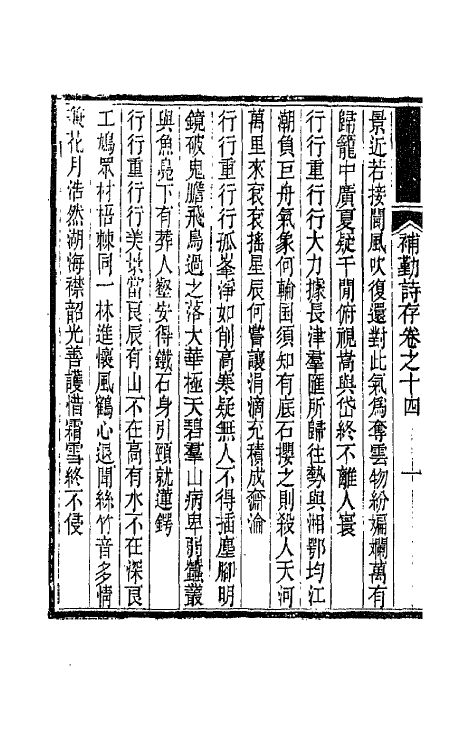 補勤詩存卷之十四
一
景近若接閬風吹復還對此氣為奪雲物紛斒斕萬有
歸籠中廣夏疑千閒俯視嵩與岱終不離人寰
行行重行行大力據長津羣匯所歸往勢與湘鄂均江
潮負巨舟氣象何輪囷須知有底石攖之則殺人天河
萬里來袞袞搖星辰何嘗讓涓滴充積成奫淪
行行重行行孤峯淨如削高寒疑無人不得插塵腳明
鏡破鬼膽飛鳥過之落大華極天碧羣山病卑弱蠶叢
與魚鳧下有葬人壑安得鐵石身引頸就蓮鍔
行行重行行美景當良辰有山不在高有水不在深良
工鳩眾材梧棘同一林進懷風鶴心退聞絲竹音多情
花月浩然湖海襟韶光善護惜霜雪終不侵